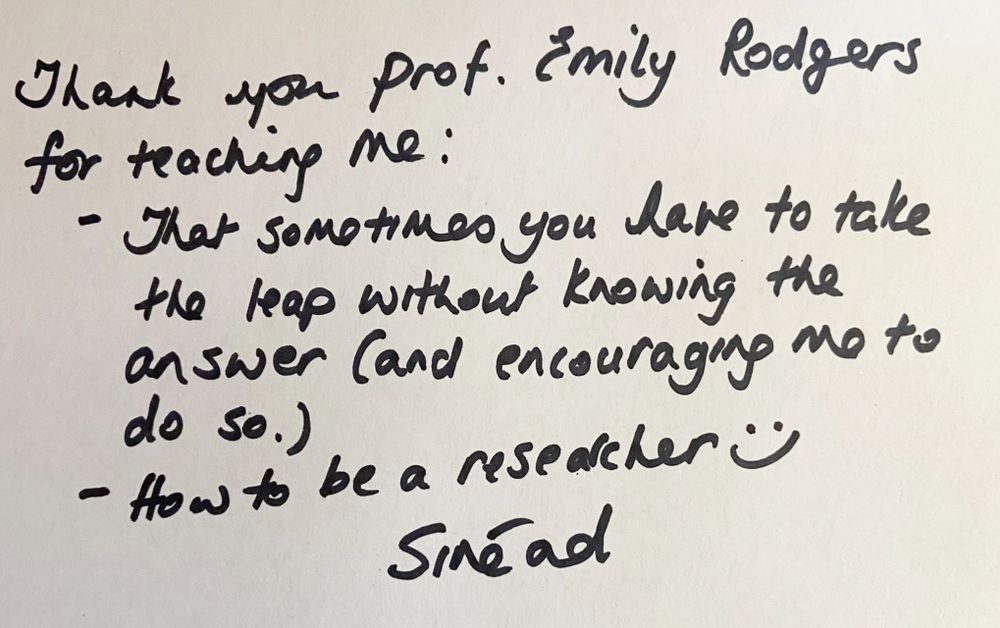 Thank you Prof. Emily Rodgers
for teaching me:
- That sometimes you have to take
the leap without knowing the
answer (and encouraging me to
do so.)
- How to be a researcher :)
Sinéad